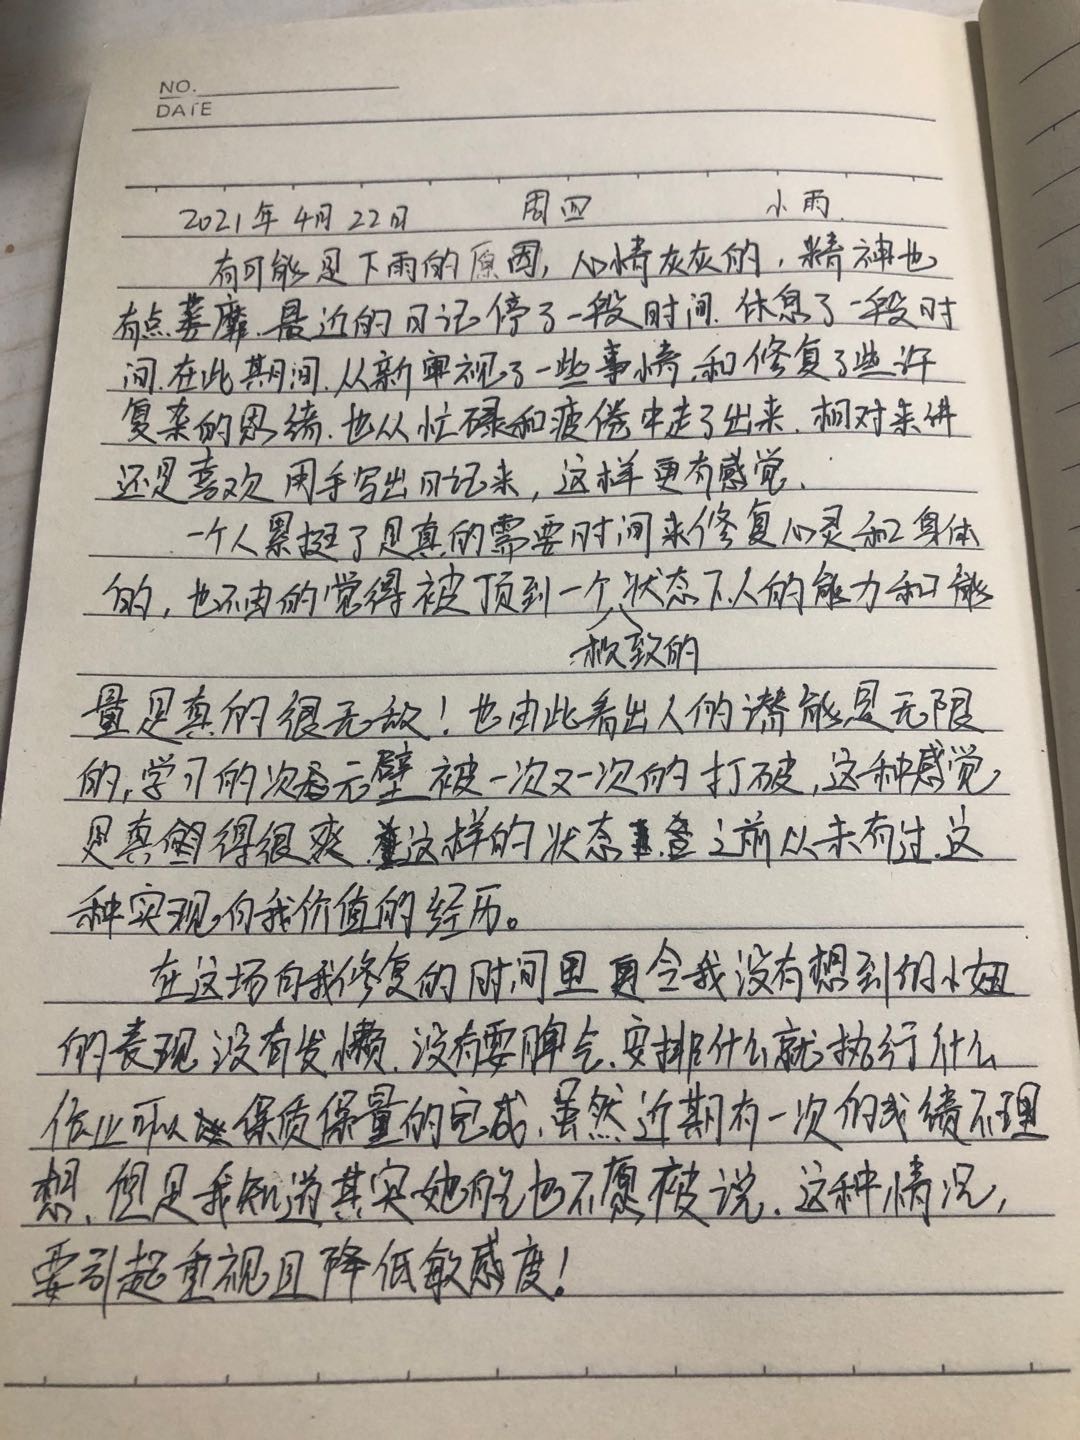 NO.
DATE
2021年4月22日 周四 小雨.
有可能是下雨的原因,心情灰灰的,精神也
有点萎靡.最近的日记停了一段时间.休息了一段时
间.在此期间.从新审视了一些事情.和修复了些许
复杂的思绪.也从忙碌和疲倦中走了出来.相对来讲
还是喜欢用手写出日记来,这样更有感觉.
一个人累挺了是真的需要时间来修复心灵和身体
的,也不由的觉得被顶到一个状态下.人的能力和能
极致的
量是真的很无敌!也由此看出人的潜能是无限
的,学习的次元壁被一次又一次的打破,这种感觉
是真的很爽.这样的状态是之前从未有过.这
种实现自我价值的经历。
在这场自我修复的时间里更令我没有想到的小妞
的表现没有发懒.没有耍脾气.安排什么就执行什么
作业可以保质保量的完成.虽然近期有一次的成绩不理
想.但是我知道其实她也不愿被说.这种情况,
要引起重视且降低敏感度!